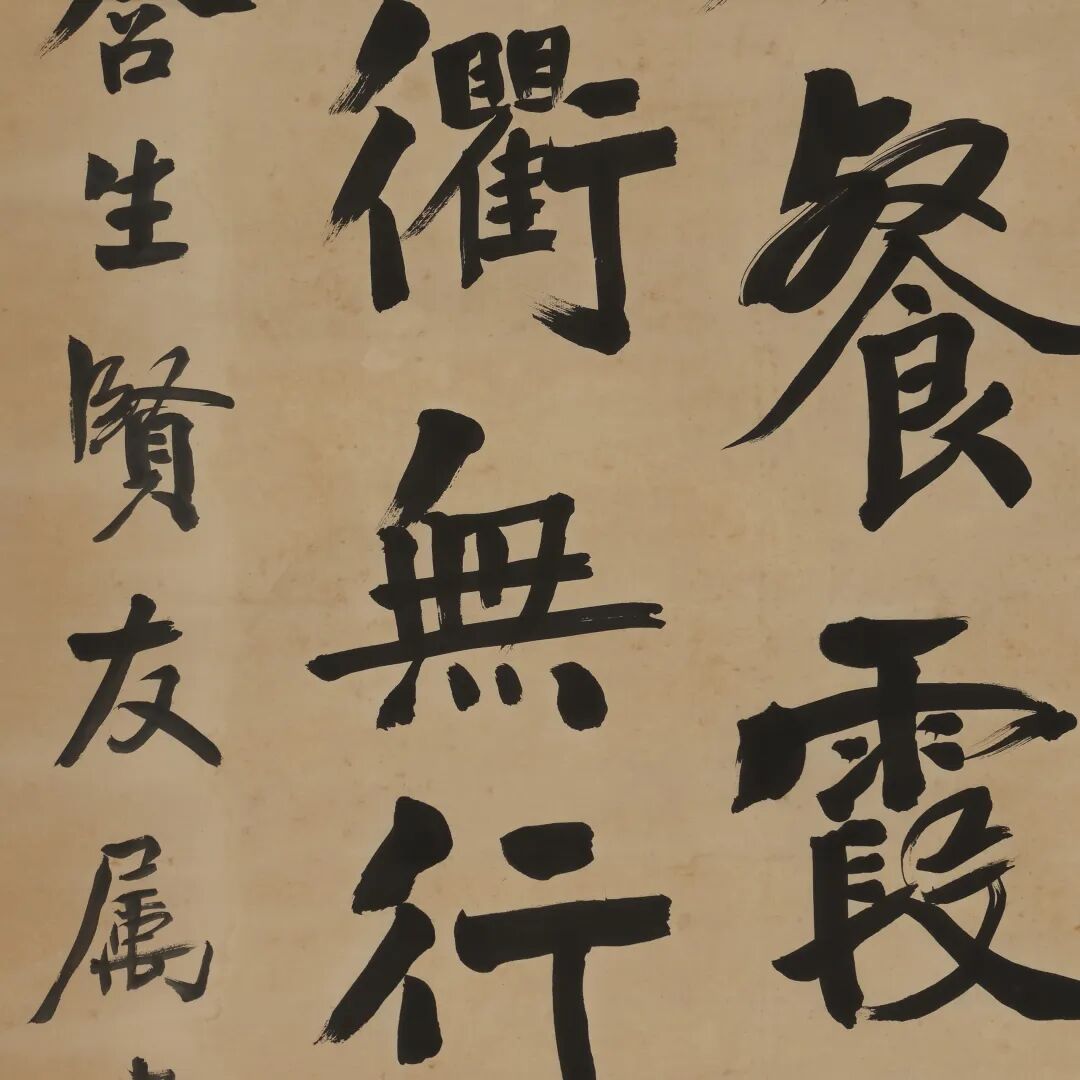 餐霞
衢無行
生賢友属